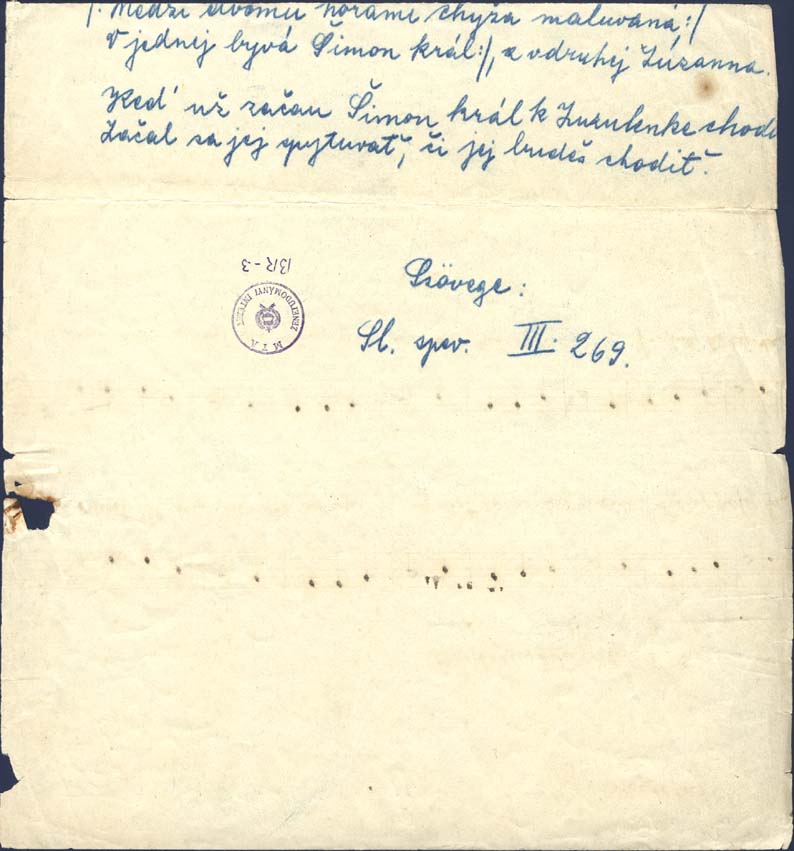 /: Medzi dvomu horami chyža maluvaná :/
V jednej bývá Šimon král :/, a vdruhej Zúzanna.
Keď už začau Šimon král k Zuzulenke chodi
Začal sa jej spytuvať, či jej budeš chodiť.
BR-3
MTA
ZENETUDOMÁNYI INTÉZET
Szövege:
Sl. spev. III. 269.